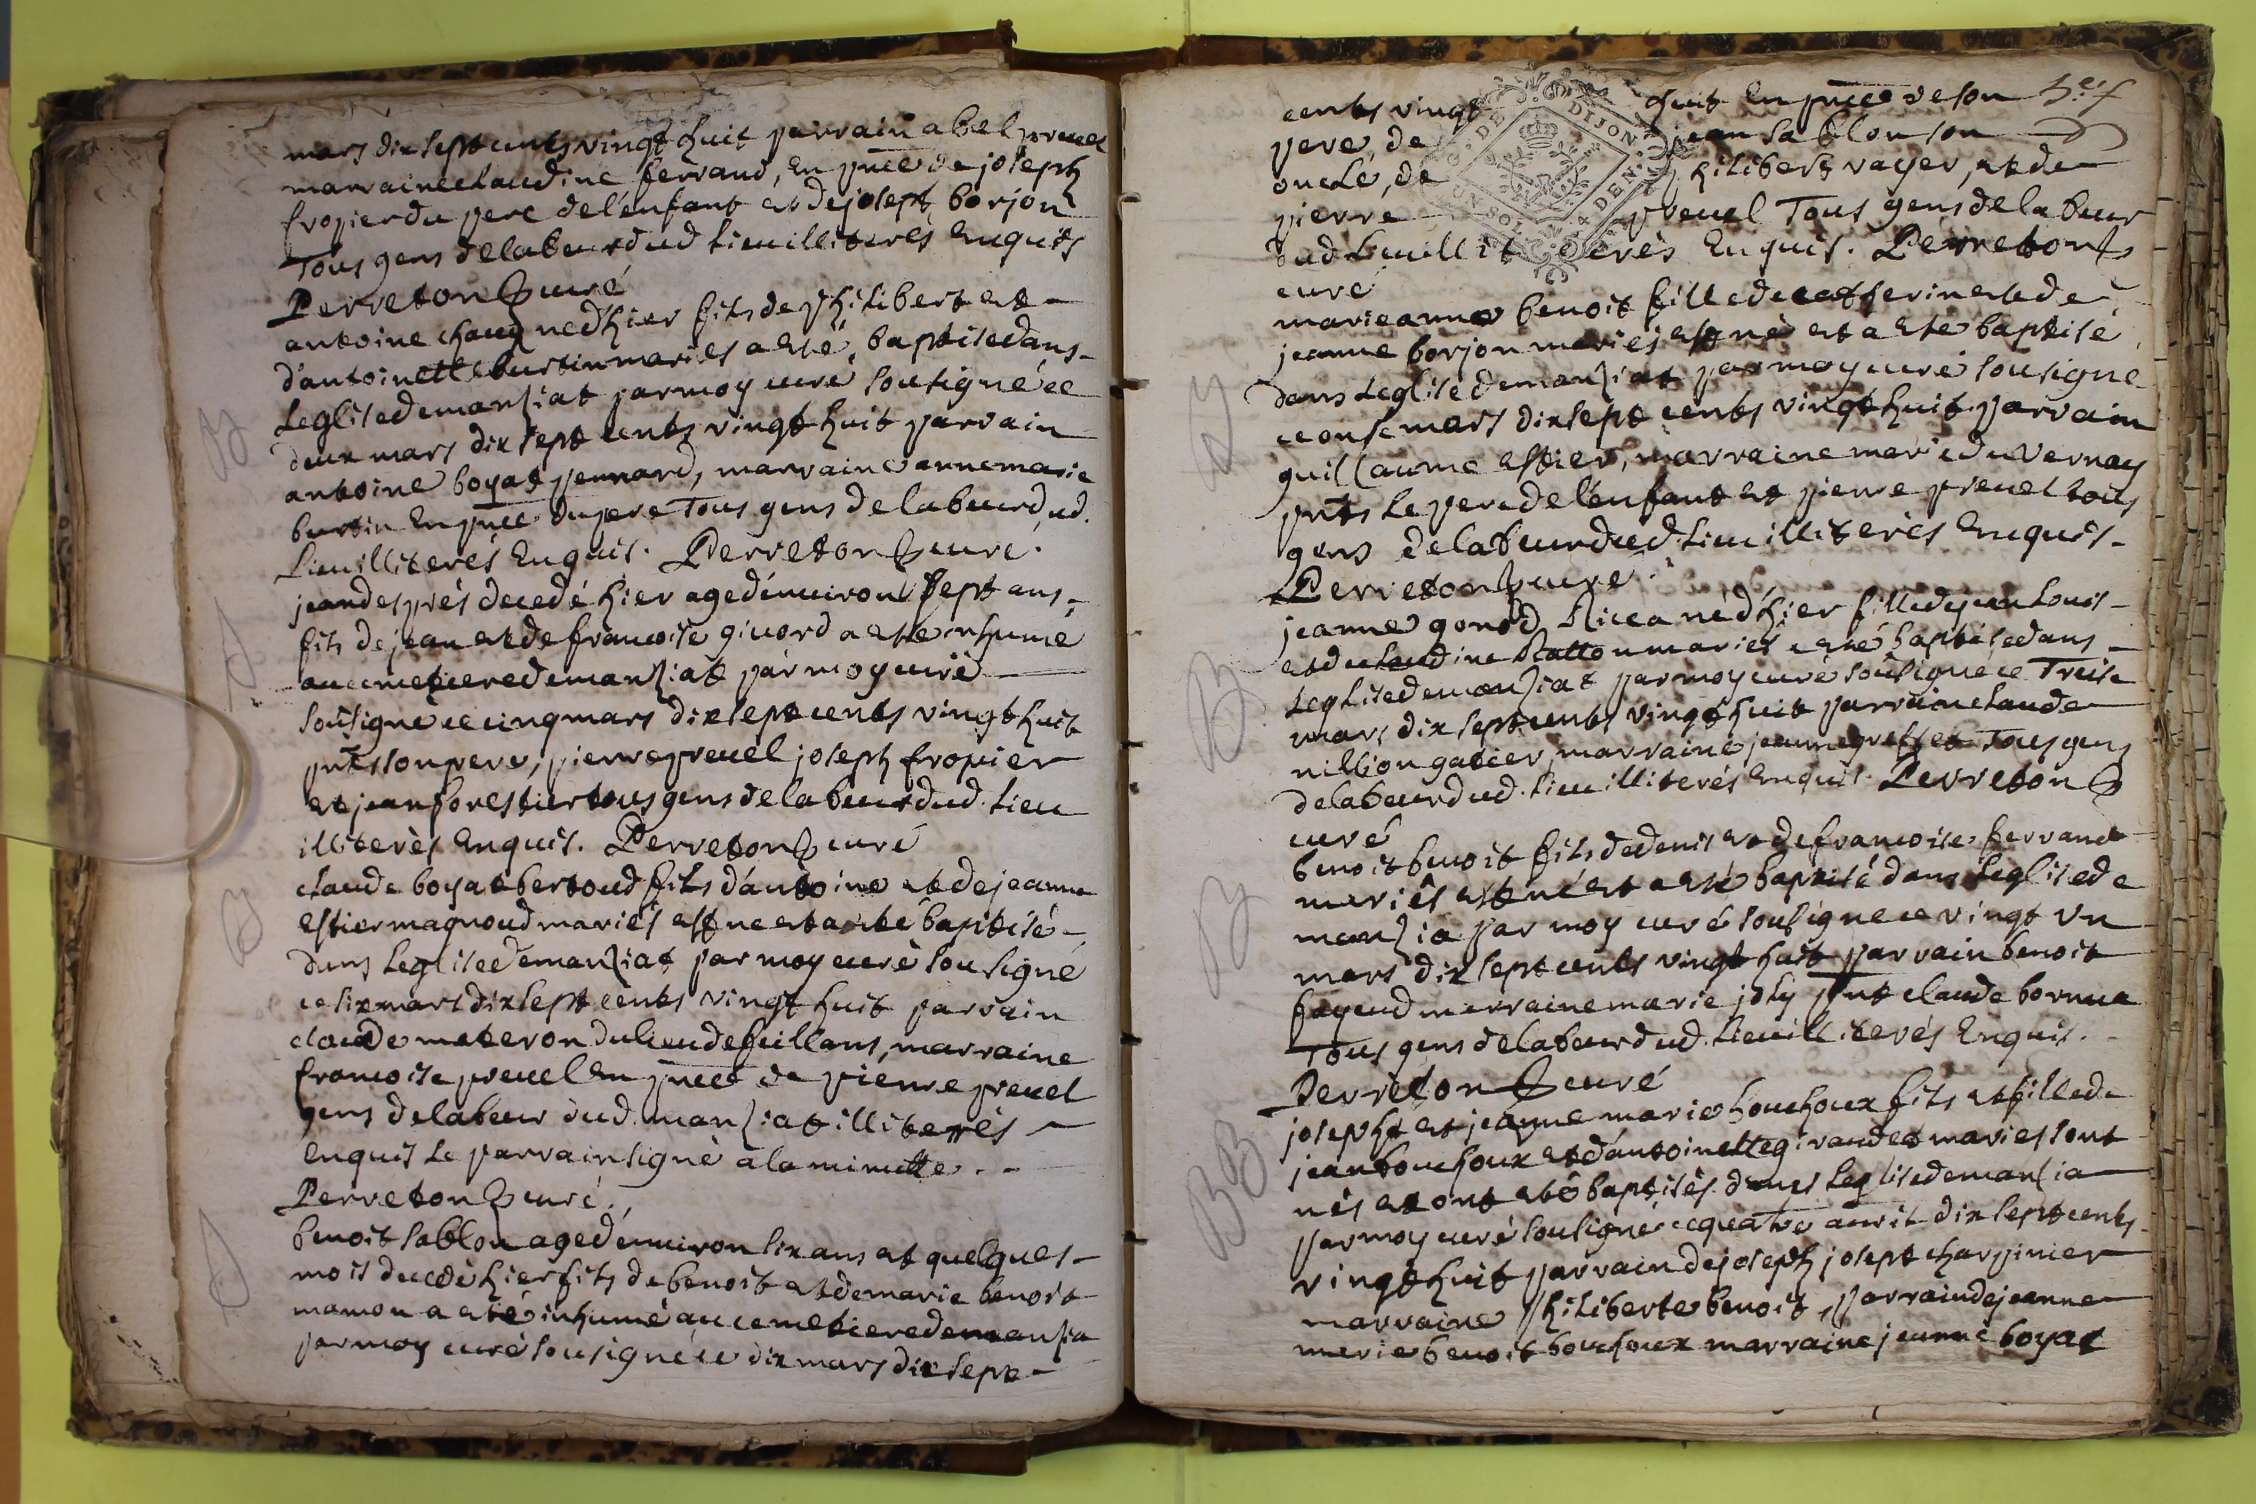 mars dix sept cents vingt huit parrain abel preuel
marraine claudine ferrand, En pnce de joseph
fropier du pere de lenfant et de joseph borjon
Tous gens de labeur dud Lieu illiteres Enquis
Perreton curé
antoine chary né d'hier fils de philibert et
d'antoinette burtin mariés a esté baptisé dans
Leglise de manziat par moy curé sousigné ce
deux mars dix sept cents vingt huit parrain
antoine boyat pennard, marraine anne marie
burtin En pnce du pere Tous gens de labeur dud.
Lieu illiterés Enquis. Perreton curé.
jean desprès decedé hier agé d'enuiron sept ans
fils de jean et de francoise giuord a esté inhumé
au cimetiere de manziat par moy curé
sousigné ce cinq mars dix sept cents vingt huit
pnts son pere, pierre preuel joseph fropier
et jean forestier tous gens de labeur dud. Lieu
illiterès Enquis. Perreton curé
claude boyat bertoud fils d'antoine et de jeanne
estier magnoud mariés est né et a esté baptisé
dans Leglise de manziat par moy curé sousigné
ce six mars dix sept cents vingt huit parrain
claude materon du lieu de feillans, marraine
francoise preuel En pnce de pierre preuel
gens de labeur dud. manziat illiterés
Enquis Le parrain signé a la minutte.
Perreton curé.
benoit sablon agé d'enuiron six ans et quelques
mois decedé hier fils de benoit et de marie benoit
mamon a esté inhumé au cemetiere de manzia
par moy curé sousigné ce dix mars dix sept
cents vingt huit En pnce de son
pere, de jean sablon son
oncle, de philibert rayer, et de
pierre preuel Tous gens de labeur
dud Lieu illiterés Enquis. Perreton
curé
marieanne benoit fille de catherin et de
jeanne borjon mariés est né et a esté baptisé
dans Leglise de manziat par moy curé sousigné
ce onse mars dix sept cents vingt huit parrain
guillaume estier, marraine marie du Vernay
pnts Le pere de lenfant et pierre preuel tous
gens de labeur dud Lieu illiterès Enquis
Perreton curé.
jeanne gonod né d'hier fille de jean Louis
et de claudine mariés a esté baptisé dans
Leglise de manziat par moy curé sousigné ce Treise
mars dix sept cents vingt huit parrain claude
nillion gatier, marraine jeanne greffet Tous gens
de labeur dud. Lieu illiterés Enquis. Perreton
curé
benoit benoit fils de denis et de francoise ferrand
mariés est né et a esté baptisé dans Leglise de
manzia par moy curé sousigné ce vingt un
mars dix sept cents vingt huit parrain benoit
fayeud marraine marie joly pnt claude
Tous gens de labeur dud. Lieu illiterés Enquis.
Perreton curé
joseph et jeanne marie bouchoux fils et fille de
jean bouchoux et d'antoinette giraudet mariés sont
nés et ont esté baptisés dans Leglise de manzia
par moy curé sousigné ce quatre auril dix sept cents
vingt huit parrain de joseph josept charpinier
marraine philiberte benoit, parrain de jeanne
marie benoit bouchoux marraine jeanne boyat
G. DE DIJON